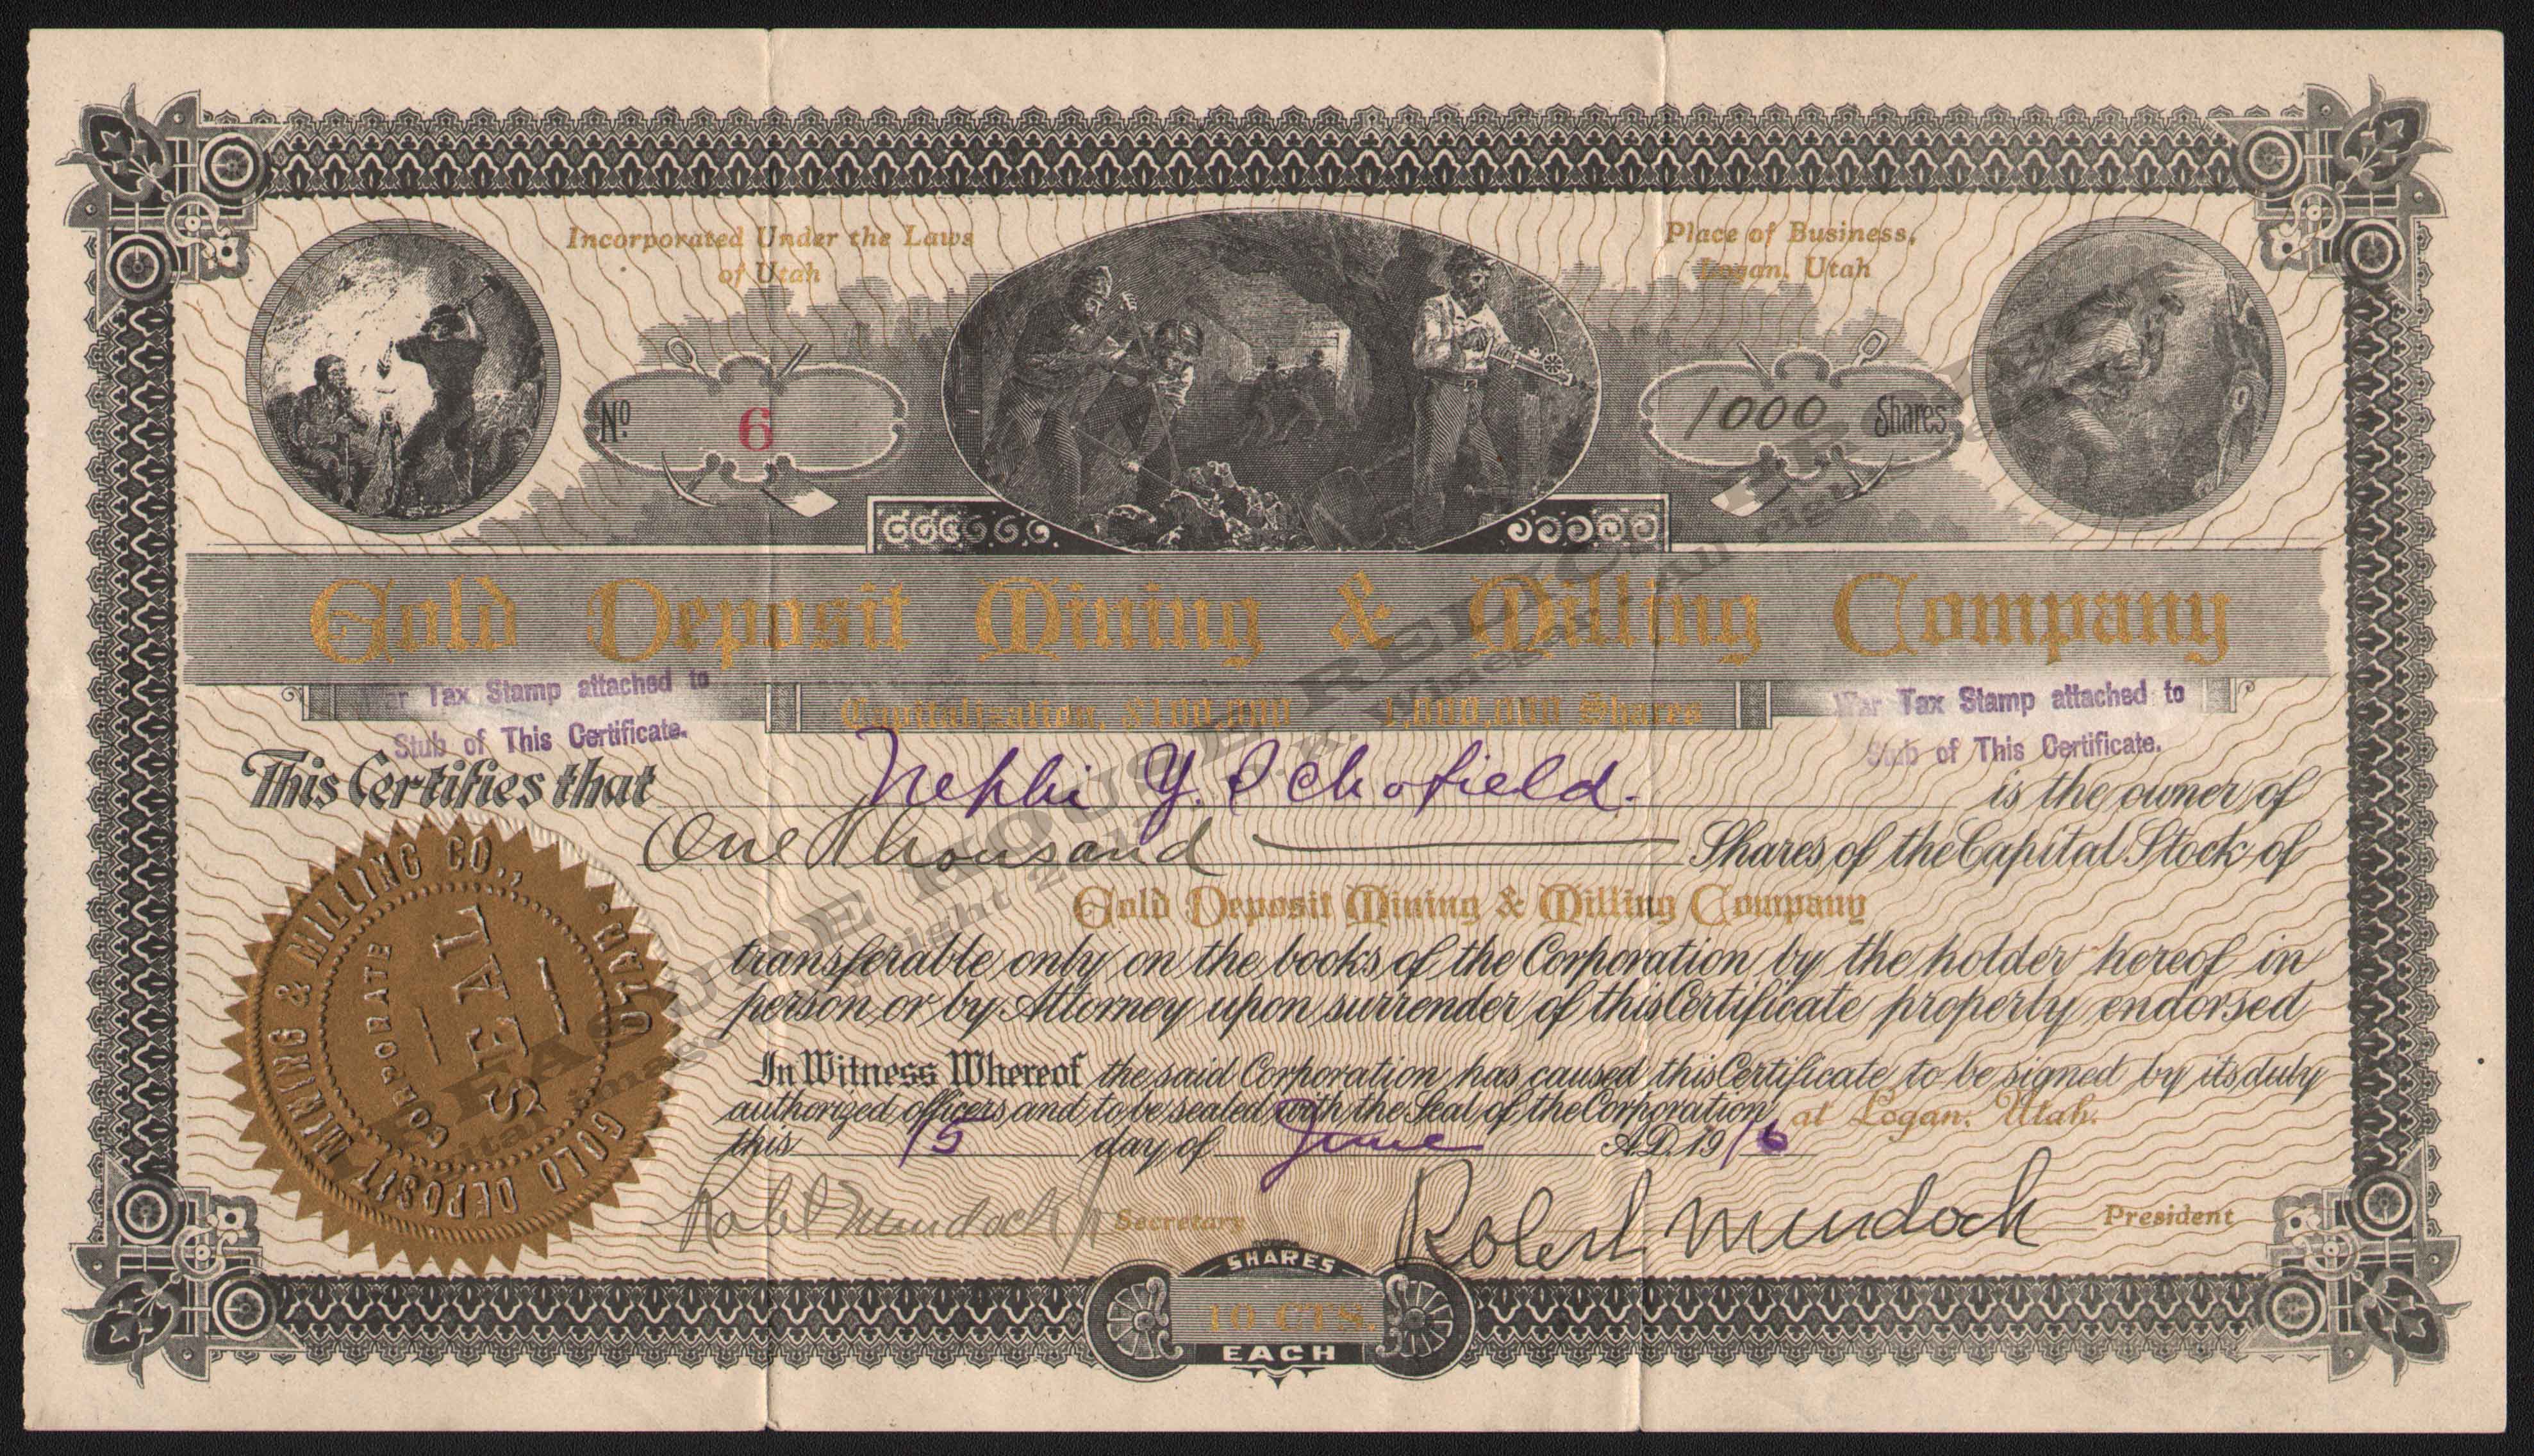 Incorporated Under the Laws
of Utah
Place of Business,
Logan, Utah
No. 6
1000 Shares
Gold Deposit Mining & Milling Company
War Tax Stamp attached to
Stub of This Certificate.
Capitalization, $100,000 1,000,000 Shares
War Tax Stamp attached to
Stub of This Certificate.
This Certifies that Nephi Y. Schofield. is the owner of
One Thousand Shares of the Capital Stock of
Gold Deposit Mining & Milling Company
transferable only on the books of the Corporation by the holder hereof in
person or by Attorney upon surrender of this Certificate property endorsed
In Witness Whereof the said Corporation has caused this Certificate to be signed by its duly
authorized officers and to be sealed with the Seal of the Corporation at Logan, Utah.
this 15 day of June A.D. 1916
Robt Murdock Jr Secretary
Robert Murdock President
GOLD DEPOSIT MINING & MILLING CO., LOGAN, UTAH
CORPORATE
SEAL
SHARES
10 CTS.
EACH